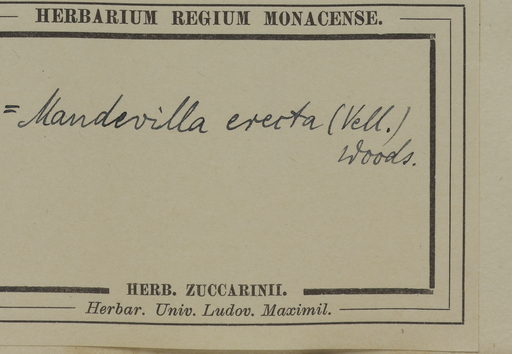 HERBARIUM REGIUM MONACENSE.
= Mandevilla erecta (Vell.)
Woods.
HERB. ZUCCARINII.
Herbar. Univ. Ludov. Maximil.